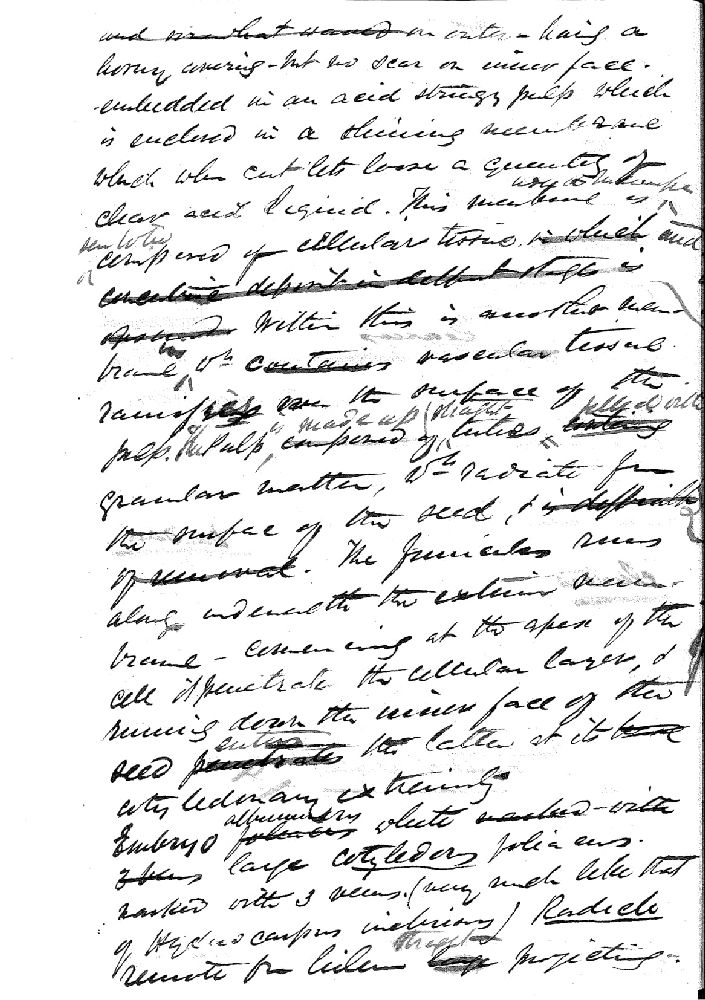 and somewhat waved on outer - having a
horny covering - but no scar on inner face.
embedded in an acid stringy pulp which
is enclosed in a shining membrane
which when cut lets loose a quantity of
clear acid liquid. This membrane is
composed of cellular tissue in which and
concentric deposit in different stages is
Within this is another mem-
brane, wh contains vascular tissue
over the surface of the
is made up straight filled with
pulp. The Pulp composed of tubes
granular matter, wh radiate from
the surface of the seed, & is difficult
of removal. The funiculus runs
along underneath the exterior mem-
brane - commencing at the apex of the
cell it penetrates the cellular layers, &
running down the inner face of the
enters
seed penetrates the latter at its
cotyledonary extremity
albuminous
Embryo white marked with
large cotyledons foliaceous.
marked with 3 veins. (very much like that
of Hydnocarpus inebrians) Radicle
straight
remote from hilum large projecting.